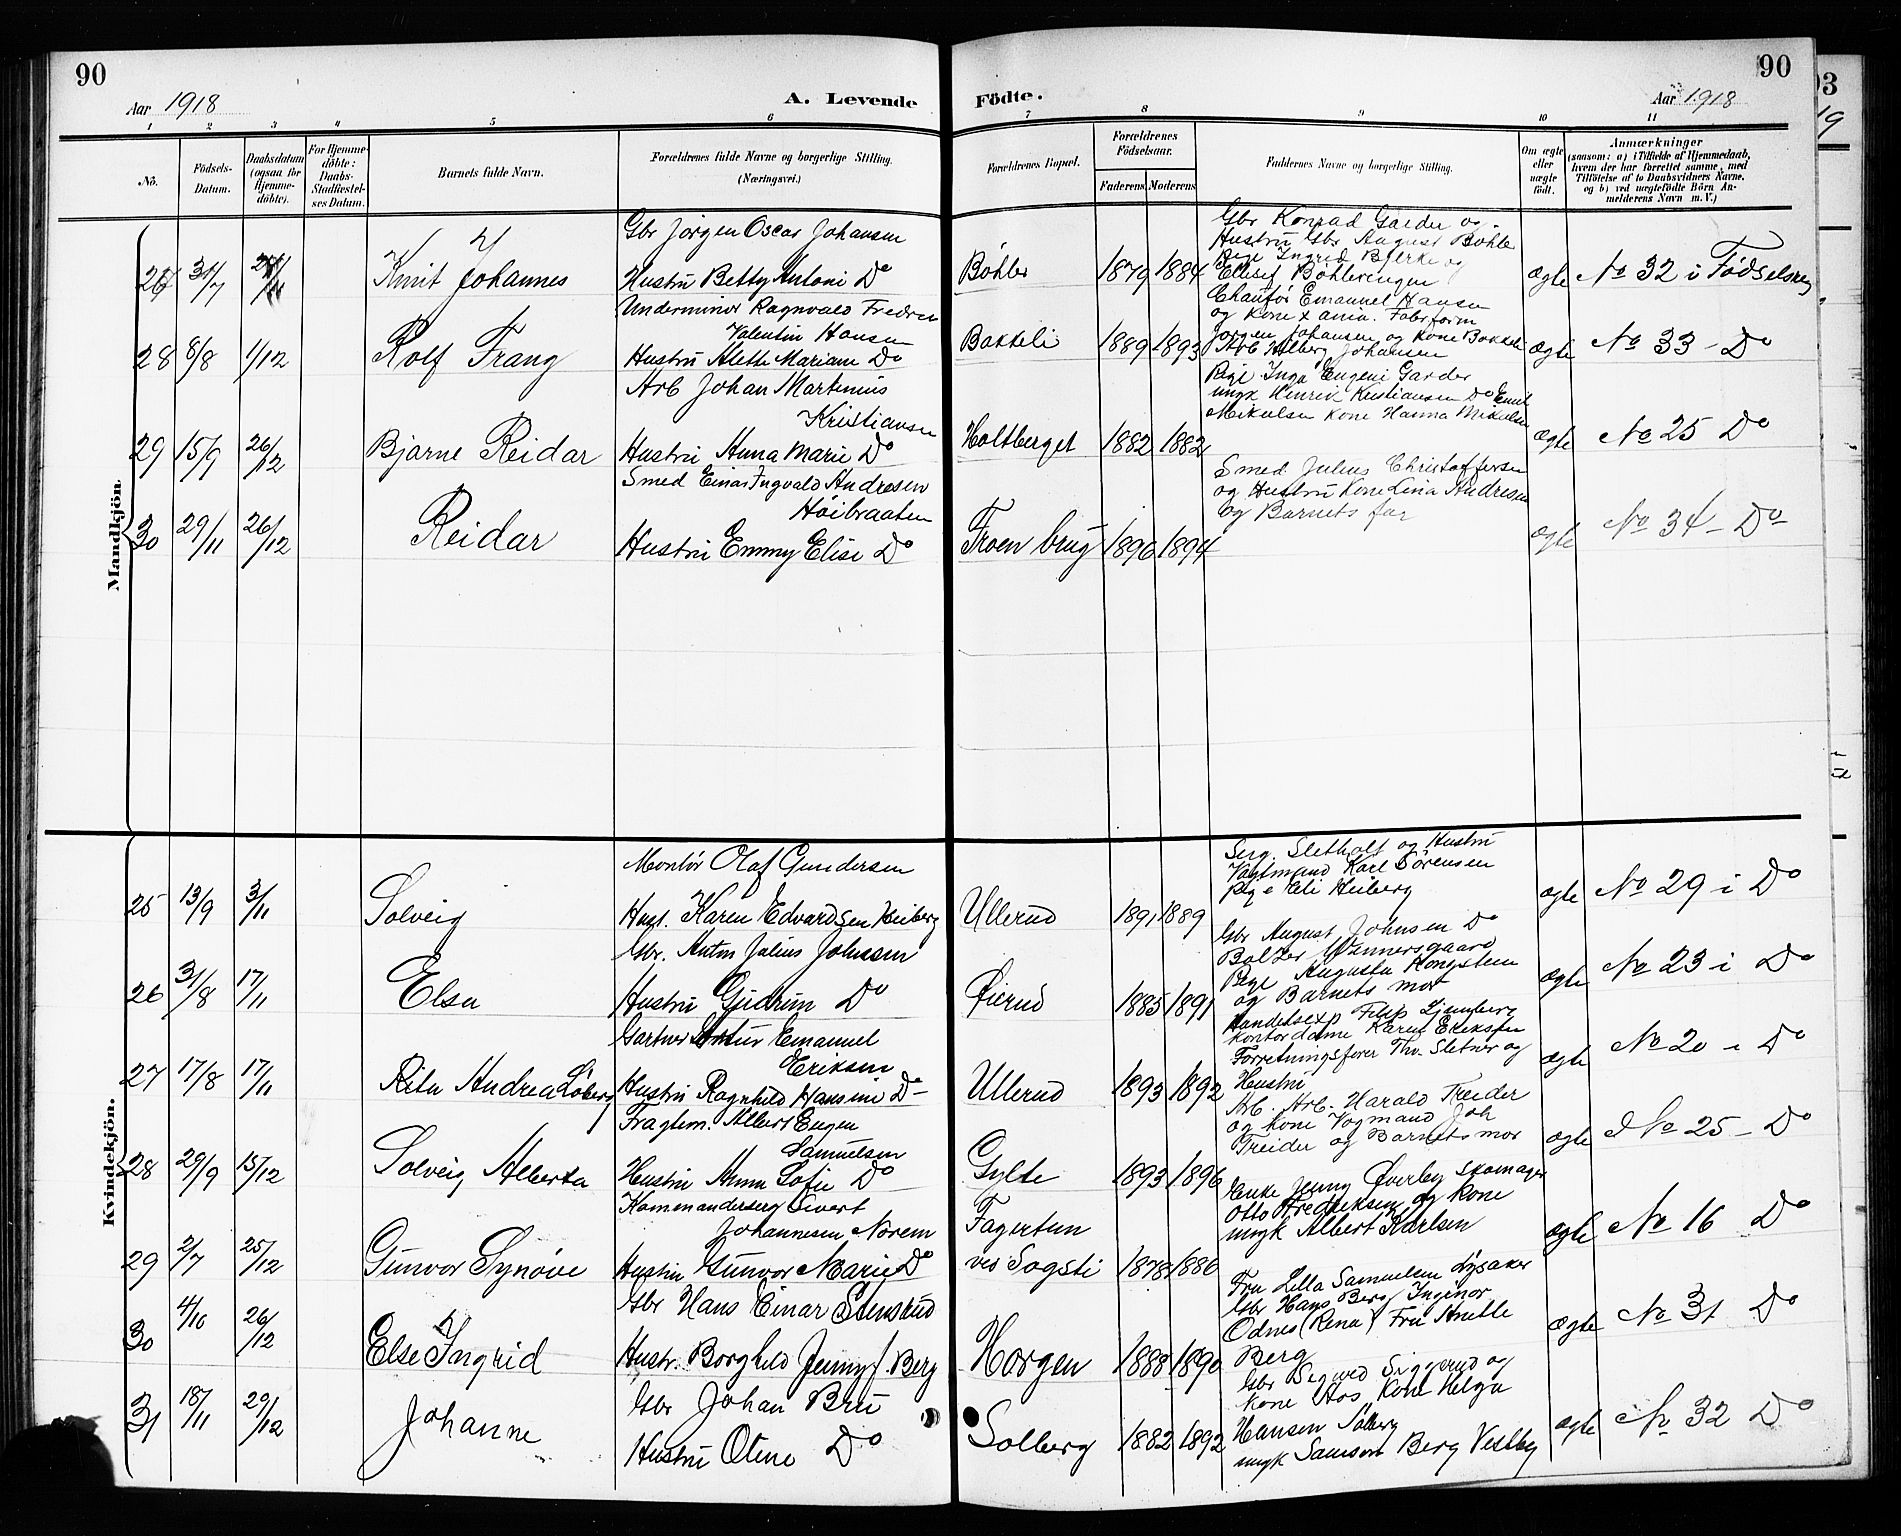 90
90
Aar 1918
A. Levende
Födte.
Aar 1918
1 2 3 4 5 6 7 8 9 10 11
No.
Födsels-
Datum.
Daabsdatum
(ogsaa for
Hjemme-
döbte).
For Hjemme-
döbte:
Daabs-
Stadfæstel-
ses Datum.
Barnets fulde Navn.
Forældrenes fulde Navne og borgerlige Stilling.
(Næringsvei.)
Forældrenes Bopæl.
Forældrenes
Födselsaar.
Faderens. Moderens.
Faddernes Navne og borgerlige Stilling.
Om ægte
eller
uægte
født.
Anmærkninger
(saasom: a) i Tilfælde af Hjemmedaab,
hvem der har forrettet samme, med
Tilföielse af to Daabsvidners Navne,
og b) ved uægtefödte Börn An-
melderens Navn m. V.)
Mandkjön
Gbr Jörgen Oscar Johansen
Hustru Betty Antoni Do
31/7
Knut Johannes
Böhler
1879 1884
Gbr Konrad Garder og
Hustru Gbr August Böhle
Pige Ingrid Bjerke og
Ellisif Böhlerengen
ægte
No 32 i Fødselsreg
28
8/8
1/12
Rolf Frang
Underminör Ragnvald Fredrik
Valentin Hansen
Hustru Aleth Mariane Do
Bakkeli
1889 1893
Chauför Emanuel Hansen
og Kone
Jörgen Johansen og Kone Bakkeli
Arb Alberg Johansen
ægte
No 33 - Do
29
15/9
26/12
Bjarne Reidar
Arb Johan Martinius
Kristiansen
Hustru Anna Marie Do
Holtberget
1882 1882
Pige Inga Eugeni Garder
ungk Henrik Kristiansen Do Emil
Mikelsen Kone Hanna Mikelsen
ægte
No 25 Do
30
29/11
26/12
Reidar
Smed Einar Ingvald Andresen
Höibraaten
Hustru Emmy Elise Do
Froen brug
1896 1894
Smed Julius Christoffersen
og Hustru Kone Lina Andresen
og Barnets far
ægte
No 34 - Do
Kvindekjön.
25
13/9
3/11
Solveig
Montör Olaf Gundersen
Hust. Karen Edvardsen Heiberg
Ullerud
1891 1889
Serg. Sletholt og Hustru
Vagtmand Karl Sörensen
Pige Eli Heiberg
ægte
No 29 i Do
26
31/8
17/11
Elsa
Gbr. Anton Julius Johnsen
Hustru Gudrun Do
Øierud
1885 1891
Gbr August Johnsen Do
Balzer Wennersgaard
Pige Augusta Kongsteen
og Barnets mor
ægte
No 23 i Do
27
17/8
17/11
Rita Andrea Löberg
Gartner Artur Emanuel
Eriksen
Hustru Ragnhild Hansine Do
Ullerud
1893 1892
Handelsexp Filip Ljungberg
Kontordame Karen Eriksen
Forretningsförer Thv. Sletner og
Hustru
ægte
No 20 i Do
28
29/9
15/12
Solveig Alberta
Fragtem. Albert Eugen
Samuelsen
Hustru Anna Sofie Do
Gylte
1893 1896
Arb. Arb. Harald Treider
og Kone Vogmand Joh
Treider og Barnets mor
ægte
No 25 - Do
29
2/7
25/12
Gunvor Synøve
Kommandersergt Sivert
Johannesen Norem
Hustru Gunvor Marie Do
Fagertun
ved Sogsti
1878 1886
Enke Jenny Överby Skomager
Otto Fredriksen og Kone
ungk Albert Karlsen
ægte
No 16 Do
30
4/10
26/12
Else Ingrid
Gbr Hans Einar Stensrud
Hustr. Borghild Jenny f. Berg
Horgen
1888 1890
Fru Lilla Samuelsen Lysaker
Gbr Hans Berg Inginör
Ödnes (Rena) Fru Anette
Berg
ægte
No 31 Do
31
18/11
29/12
Johanne
Gbr Johan Bru
Hustru Otene Do
Solberg
1882 1892
Gbr Sigurd Siggerud og
Kone Aas Kone Helga
Hansen Solberg
ungk Samson Berg Vestby
ægte
No 32 Do